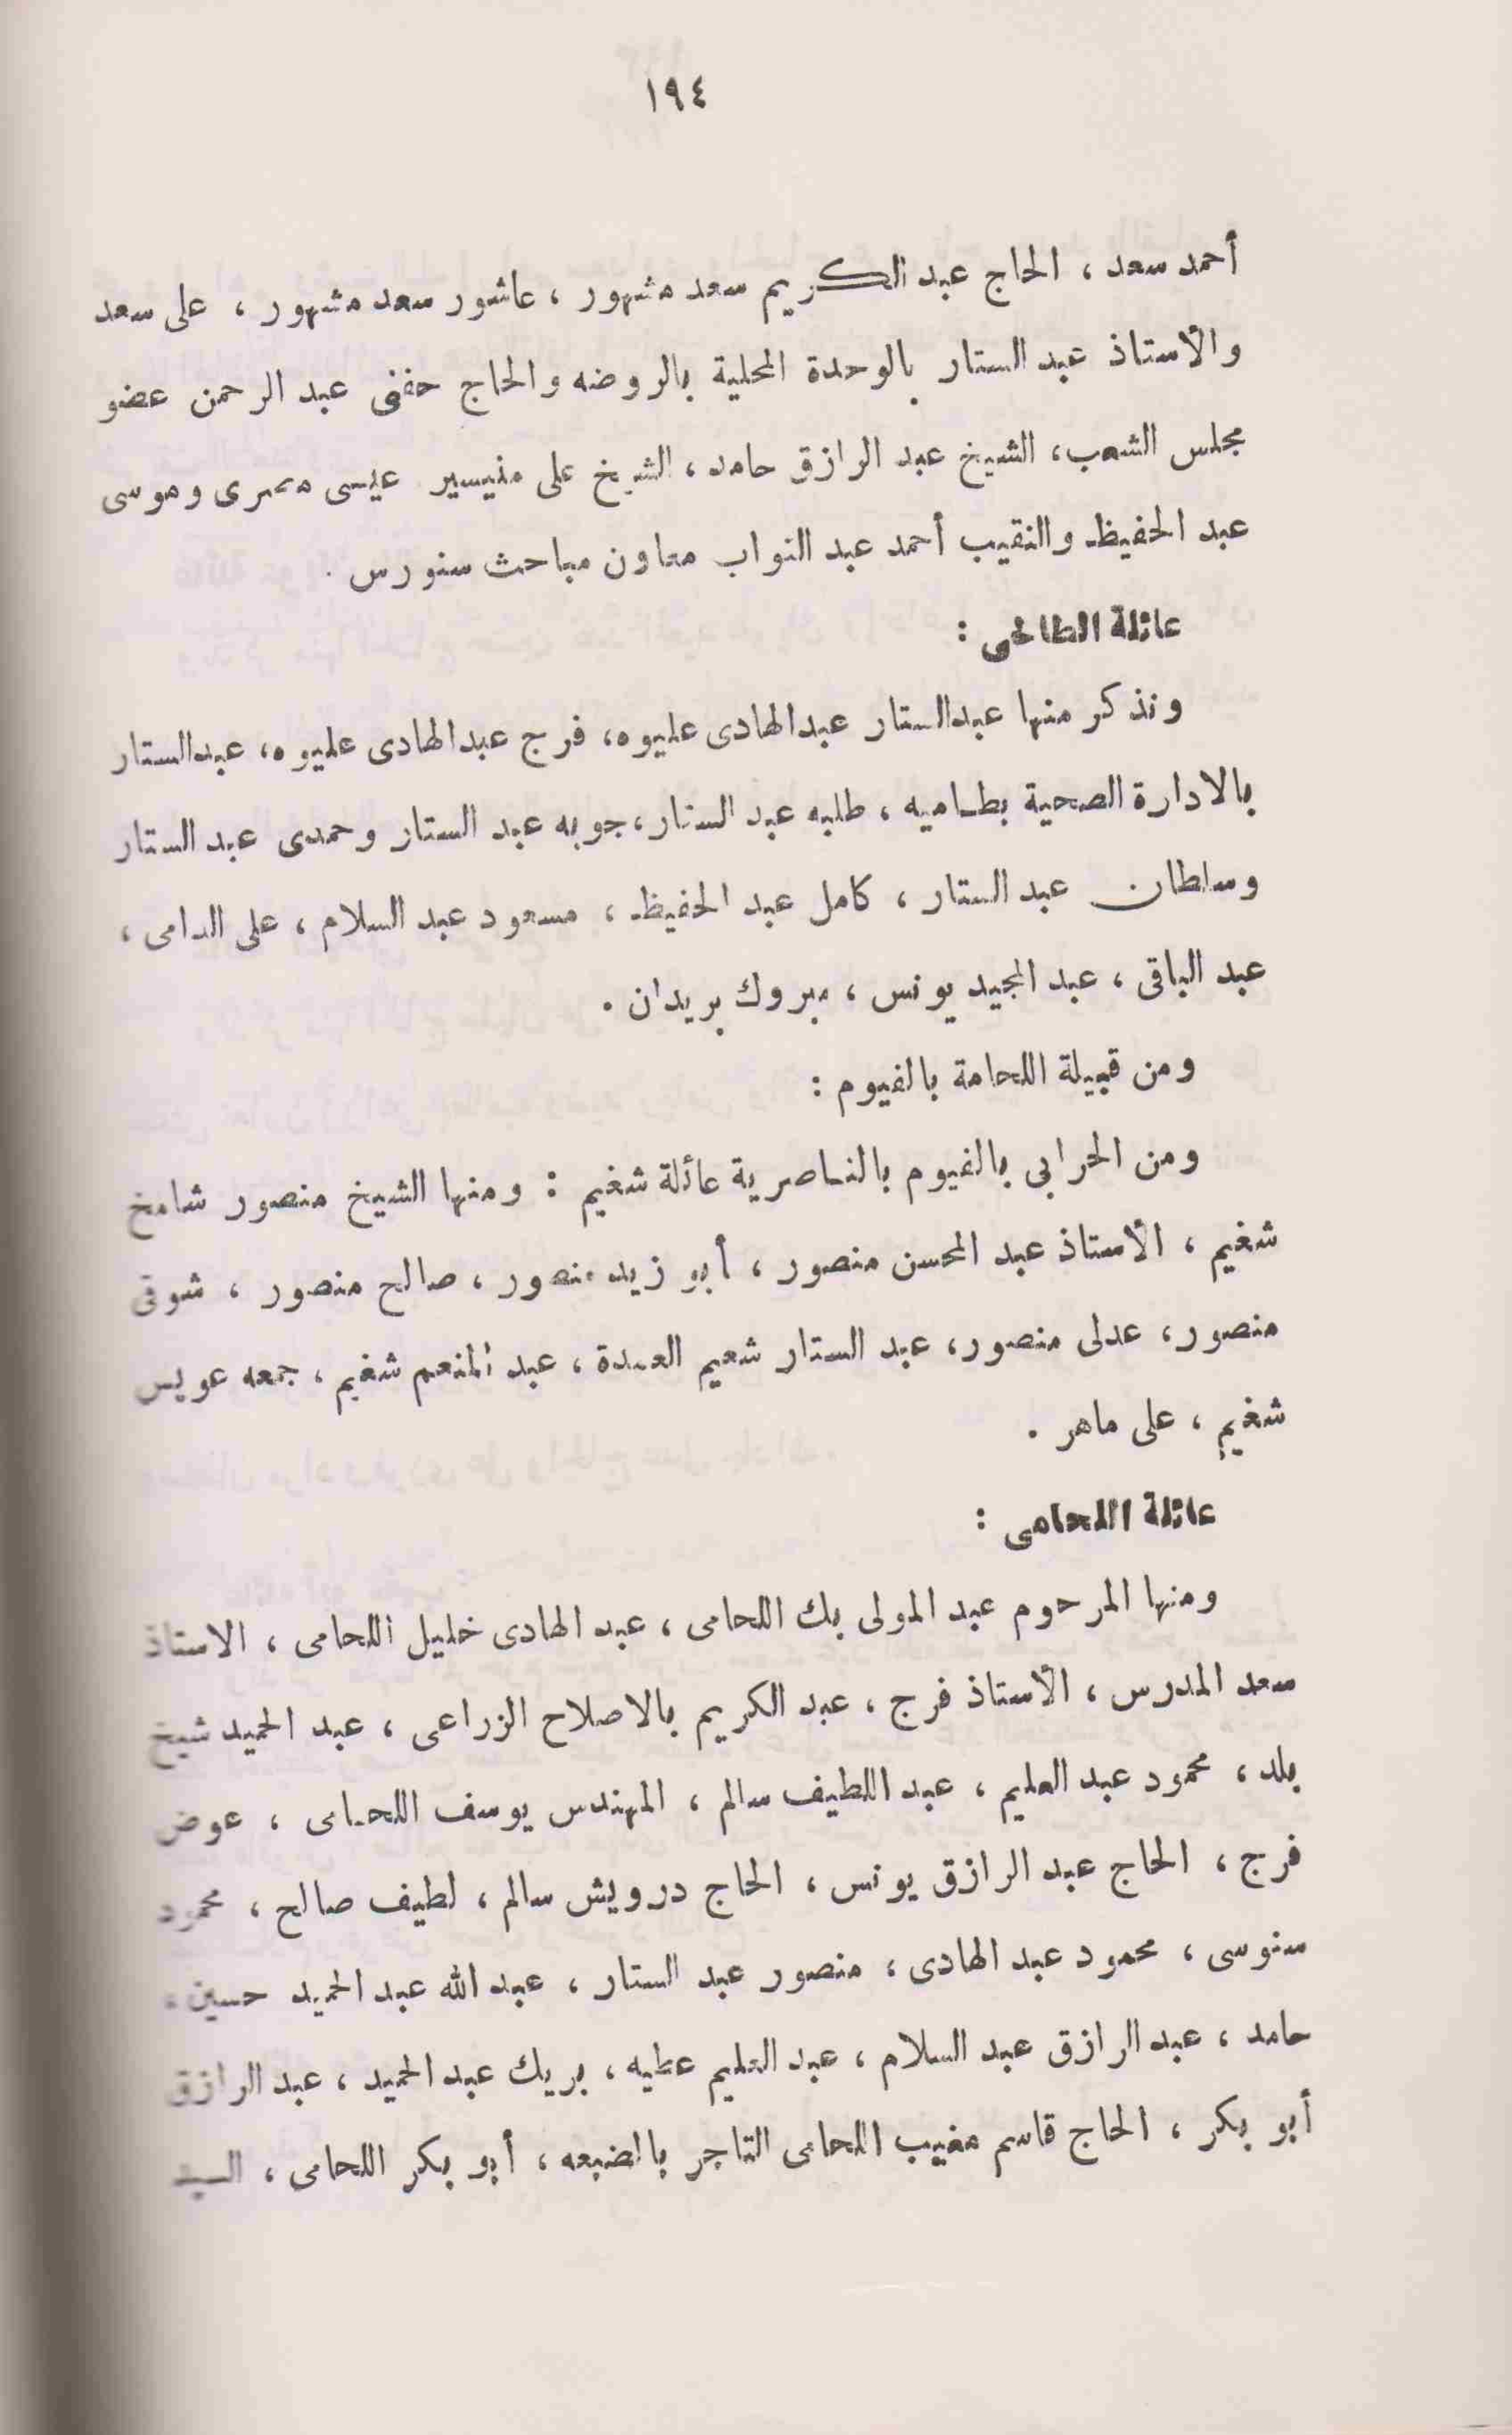 ١٩٤
أحمد سعد ، الحاج عبد الكريم سعد مشهور ، عاشور سعد مشهور ، على سعد
والأستاذ عبد الستار بالوحدة المحلية بالروضه والحاج حفنى عبد الرحمن عضو
مجلس الشعب، الشيخ عبد الرازق حامد ، الشيخ على منيسير عيسى مصرى وموسى
عبد الحفيظ والنقيب أحمد عبد النواب معاون مباحث سنورس .
عائلة الطالحى :
ونذكر منها عبدالستار عبدالهادى عليوه، فرج عبدالهادى عليوه، عبدالستار
بالادارة الصحية بطاميه ، طلبه عبد الستار، جوبه عبد الستار وحمدى عبد الستار
وسلطان عبد الستار ، كامل عبد الحفيظ ، مسعود عبد السلام ، على الدامى ،
عبد الباقى ، عبد المجيد يونس ، مبروك بريدان .
ومن قبيلة اللحامة بالفيوم :
ومن الحرابى بالفيوم بالناصرية عائلة شغيم : ومنها الشيخ منصور شامخ
شغيم ، الأستاذ عبد المحسن منصور ، أبو زيد منصور ، صالح منصور ، شوقى
منصور، عدلى منصور، عبد الستار شعيم العمدة ، عبد المنعم شغيم ، جمعه عويس
شغيم ، على ماهر .
عائلة اللحامى :
ومنها المرحوم عبد المولى بك اللحامى ، عبد الهادى خليل اللحامى ، الاستاذ
سعد المدرس ، الأستاذ فرج ، عبد الكريم بالاصلاح الزراعى ، عبد الحميد شيخ
بلد ، محمود عبد العليم ، عبد اللطيف سالم ، المهندس يوسف اللحامى ، عوض
فرج ، الحاج عبد الرازق يونس ، الحاج درويش سالم ، لطيف صالح ، محمود
سنوسى ، محمود عبد الهادى ، منصور عبد الستار ، عبد الله عبد الحميد حسين ،
حامد ، عبد الرازق عبد السلام ، عبد العليم عطيه ، بريك عبد الحميد ، عبد الرازق
أبو بكر ، الحاج قاسم مغيب اللحامى التاجر بالضبعه ، أبو بكر اللحامى ، السيد